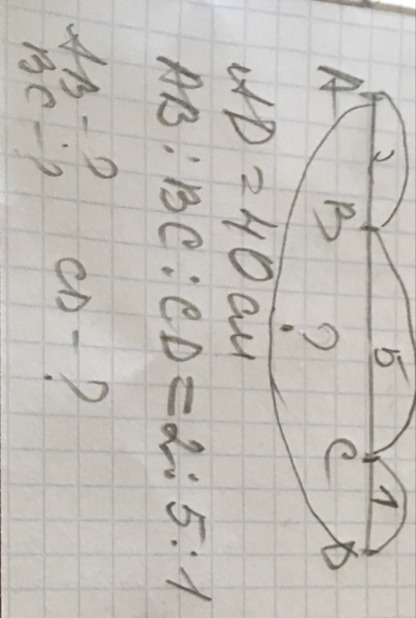 2 5 1
A B C D
?
AD = 40 см
AB : BC : CD = 2 : 5 : 1
AB - ? CD - ?
BC - ?